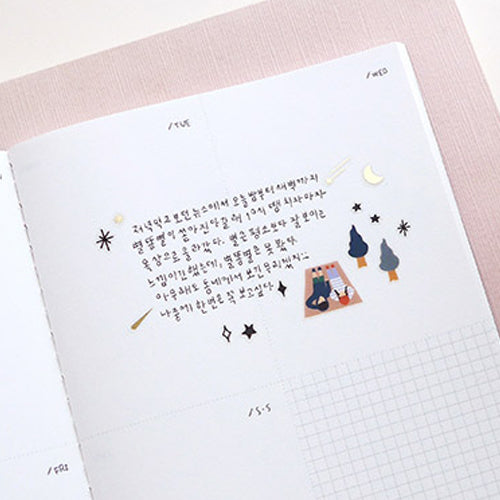 /WED
/TUE
저녁먹고 보던 뉴스에서 오늘밤부터 새벽까지
별똥별이 쏟아진다길래 10시 땡 치자마자
옥상으로 올라갔다. 별은 평소보다 잘보이는
느낌이긴했는데, 별똥별은 못 봤다.
아무래도 동네에서 보긴 무리겠지:;
나중에 한번은 꼭 보고싶다
/S·S
/FRI